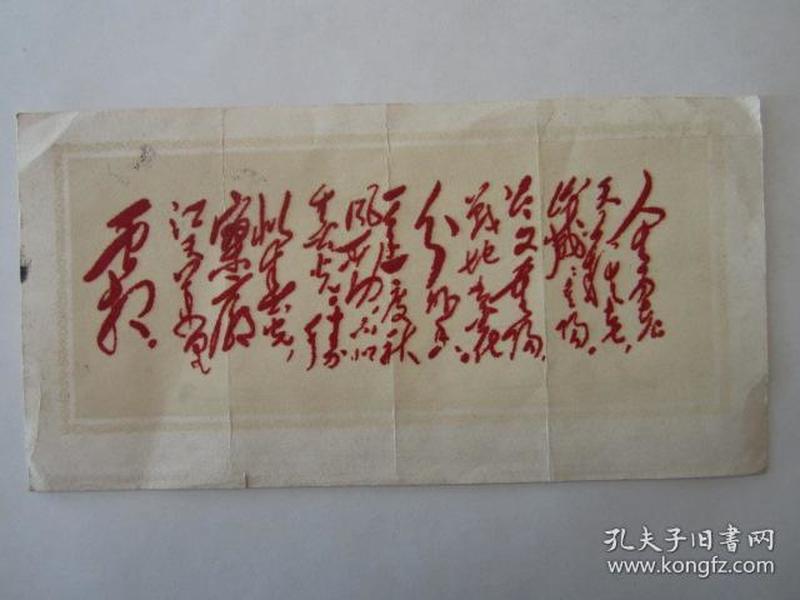 人生易老
天难老，
岁岁重阳。
今又重阳，
战地黄花
分外香。
一年一度秋
风劲，不似
春光。胜
似春光，
寥廓
江天万里
霜。
孔夫子旧書网
www.kongfz.com